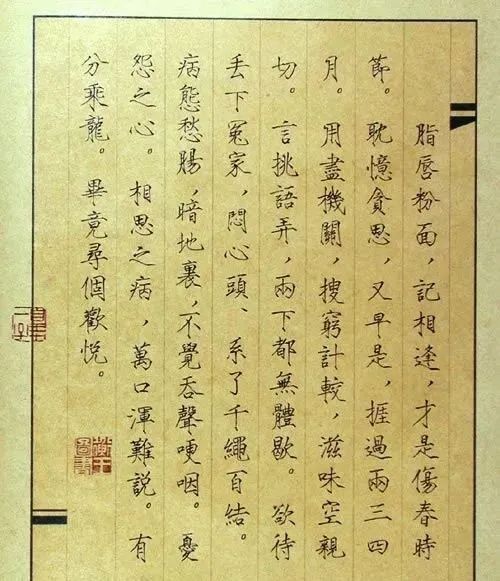 脂唇粉面，記相逢，才是傷春時
節。耽憶貪思，又早是，捱過兩三四
月。用盡機關，搜窮計較，滋味空親
切。言挑語弄，兩下都無體歇。欲待
丢下冤家，悶心頭、系了千繩百結。
病態愁腸，暗地裏，不覺吞聲哽咽。憂
怨之心。相思之病，萬口渾難説。有
分乘龍。畢竟尋個歡悅。